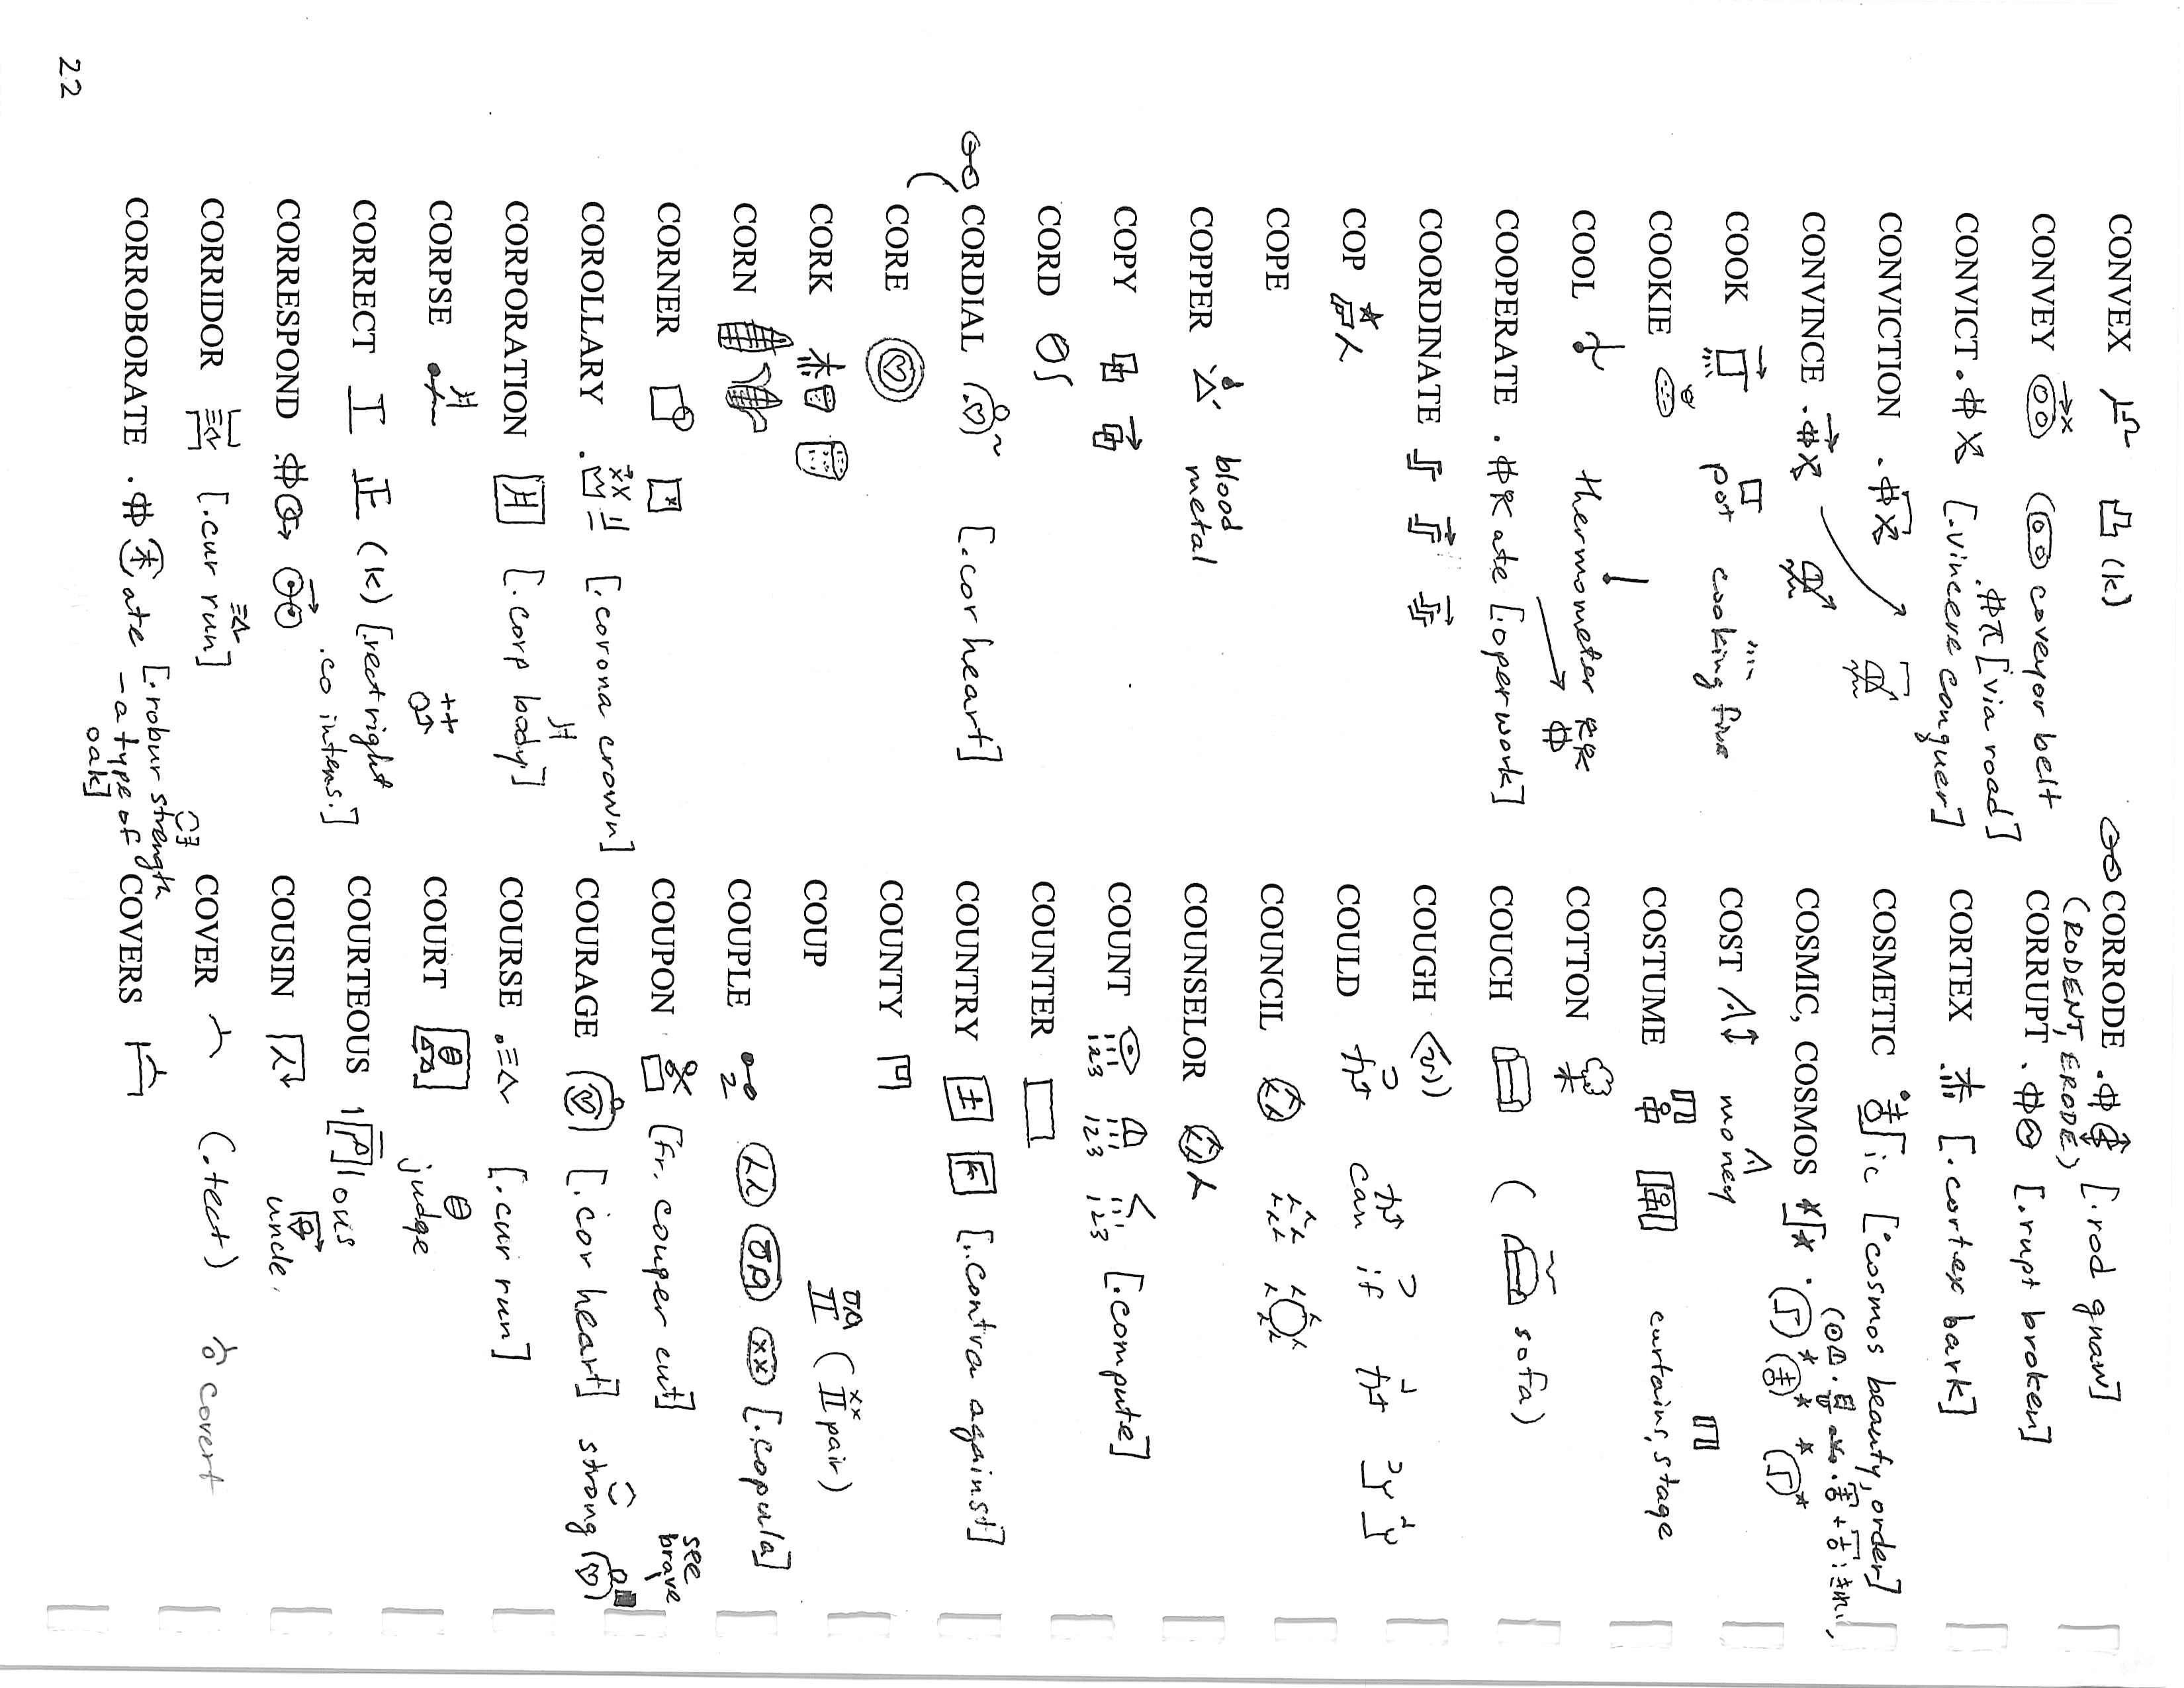 CONVEX (k)
CONVEY ( coveyor belt
[via road]
CONVICT [.vincere conquer]
CONVICTION
CONVINCE
COOK pot cooking fire
COOKIE
COOL thermometer
COOPERATE ate [.oper work]
COORDINATE
COP
COPE
COPPER blood metal
COPY
CORD
CORDIAL [.cor heart]
CORE
CORK
CORN
CORNER
COROLLARY [.corona crown]
CORPORATION [.corp body]
CORPSE
CORRECT 正 (k) [.rect right
CORRESPOND .co intens.]
CORRIDOR [.cur run]
CORROBORATE ate [.robur strength
- a type of oak]
CORRODE [.rod gnaw]
(RODENT, ERODE)
CORRUPT [.rupt broken]
CORTEX [.cortex bark]
COSMETIC ic [cosmos beauty, order]
COSMIC, COSMOS
COST money
COSTUME curtains, stage
COTTON
COUCH ( sofa)
COUGH
COULD can if
COUNCIL
COUNSELOR
COUNT 123 123 123 [.compute]
COUNTER
COUNTRY [.contra against]
COUNTY
COUP ( pair)
COUPLE 2 [.copula]
COUPON [fr. couper cut] see brave
COURAGE [.cor heart] strong
COURSE [.cur run]
COURT judge
COURTEOUS ous
COUSIN uncle
COVER (.tect) covert
COVERS
22